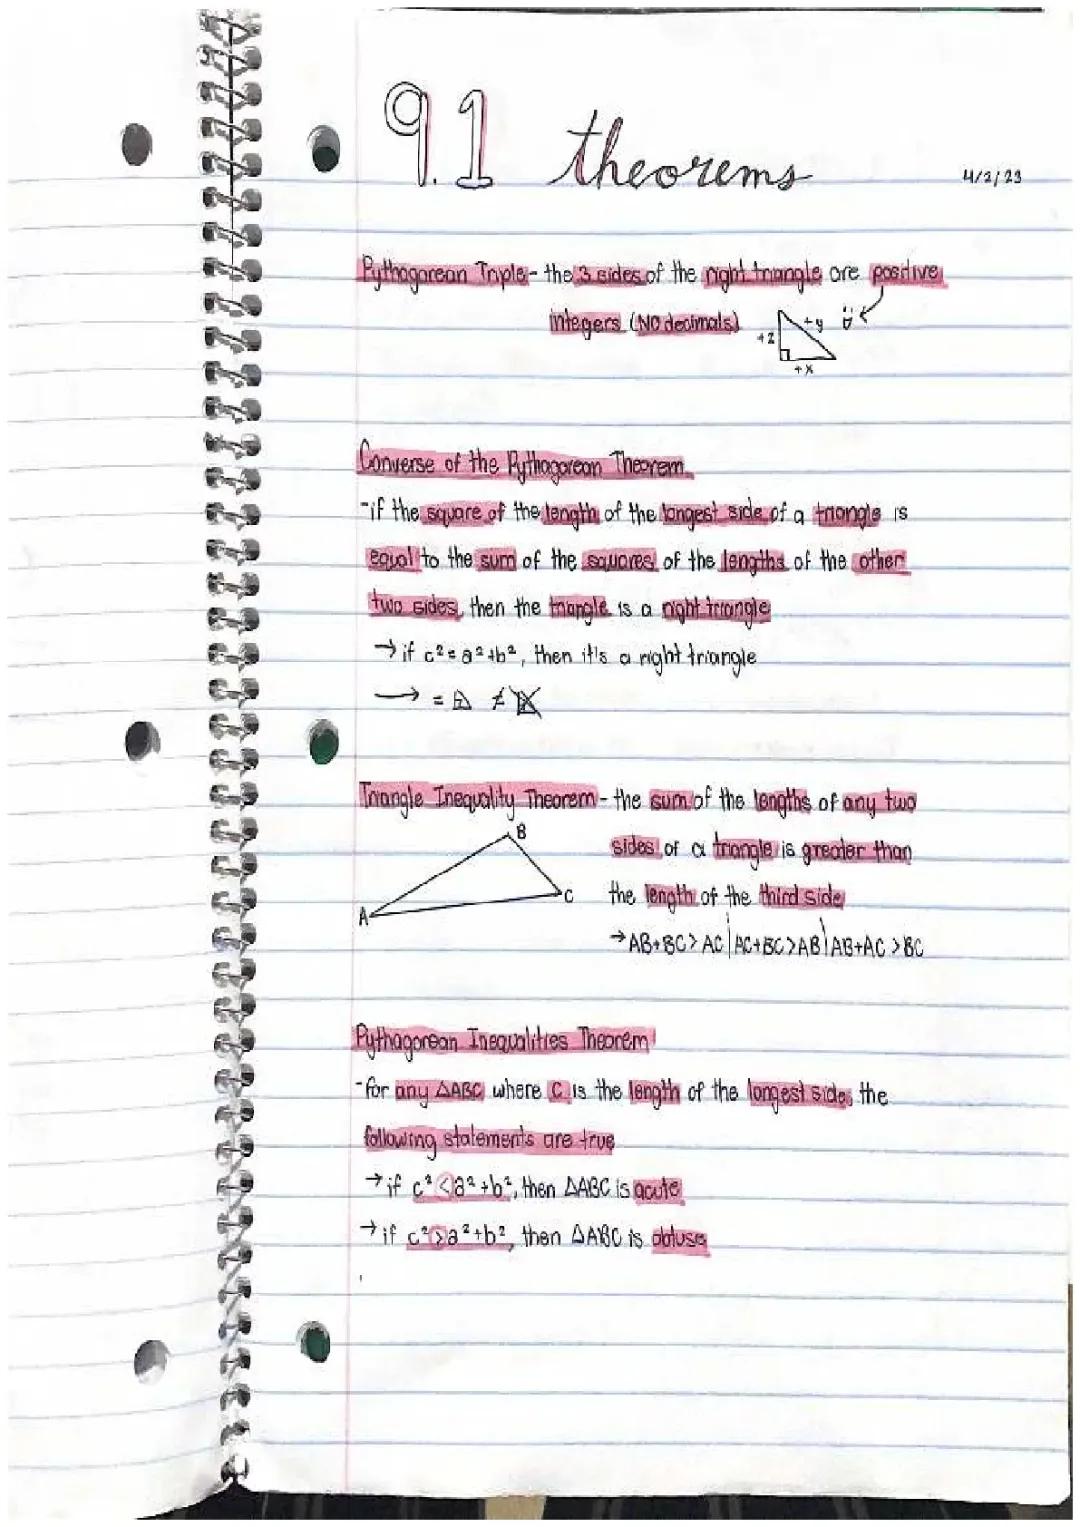 9.1 theorems
4/2/23
Pythagorean Triple - the 3 sides of the right triangle are positive
integers (NO decimals)
+z
+y
+x
Converse of the Pythagorean Theorem
-if the square of the length of the longest side of a triangle is
equal to the sum of the squares of the lengths of the other
two sides, then the triangle is a right triangle
→ if c² = a² + b², then it's a right triangle
→ = ≠
Triangle Inequality Theorem - the sum of the lengths of any two
sides of a triangle is greater than
the length of the third side
A
B
C
→ AB+BC > AC | AC+BC > AB | AB+AC > BC
Pythagorean Inequalities Theorem
-for any △ABC where C is the length of the longest side, the
following statements are true
→ if c² < a² + b², then △ABC is acute
→ if c² > a² + b², then △ABC is obtuse